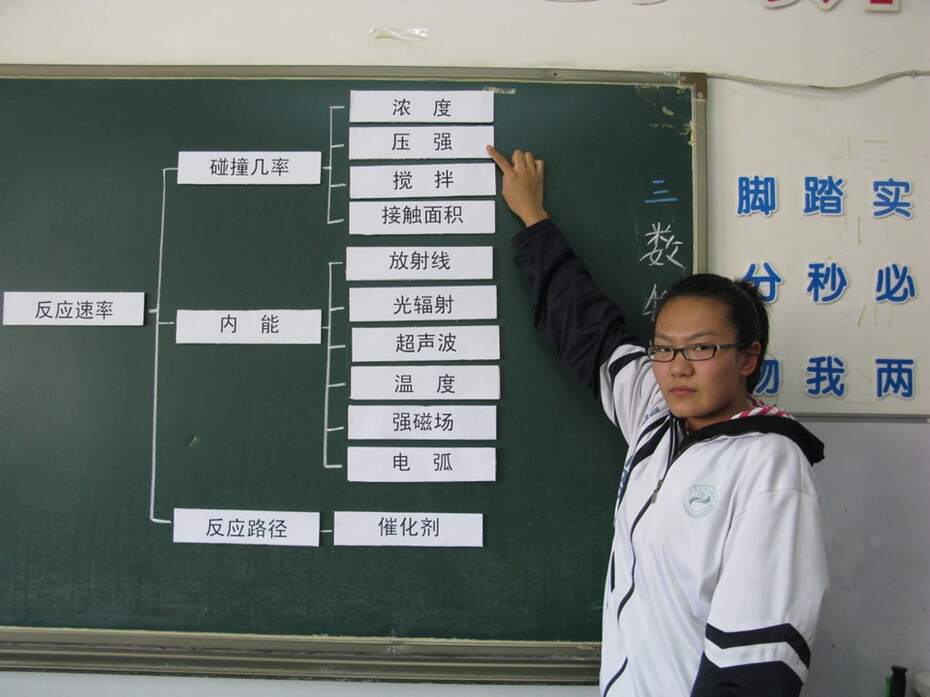 浓 度
压 强
碰撞几率
搅 拌
接触面积
放射线
光辐射
反应速率
内 能
超声波
温 度
强磁场
电 弧
反应路径
催化剂
三
数
脚踏实
分秒必
物我两